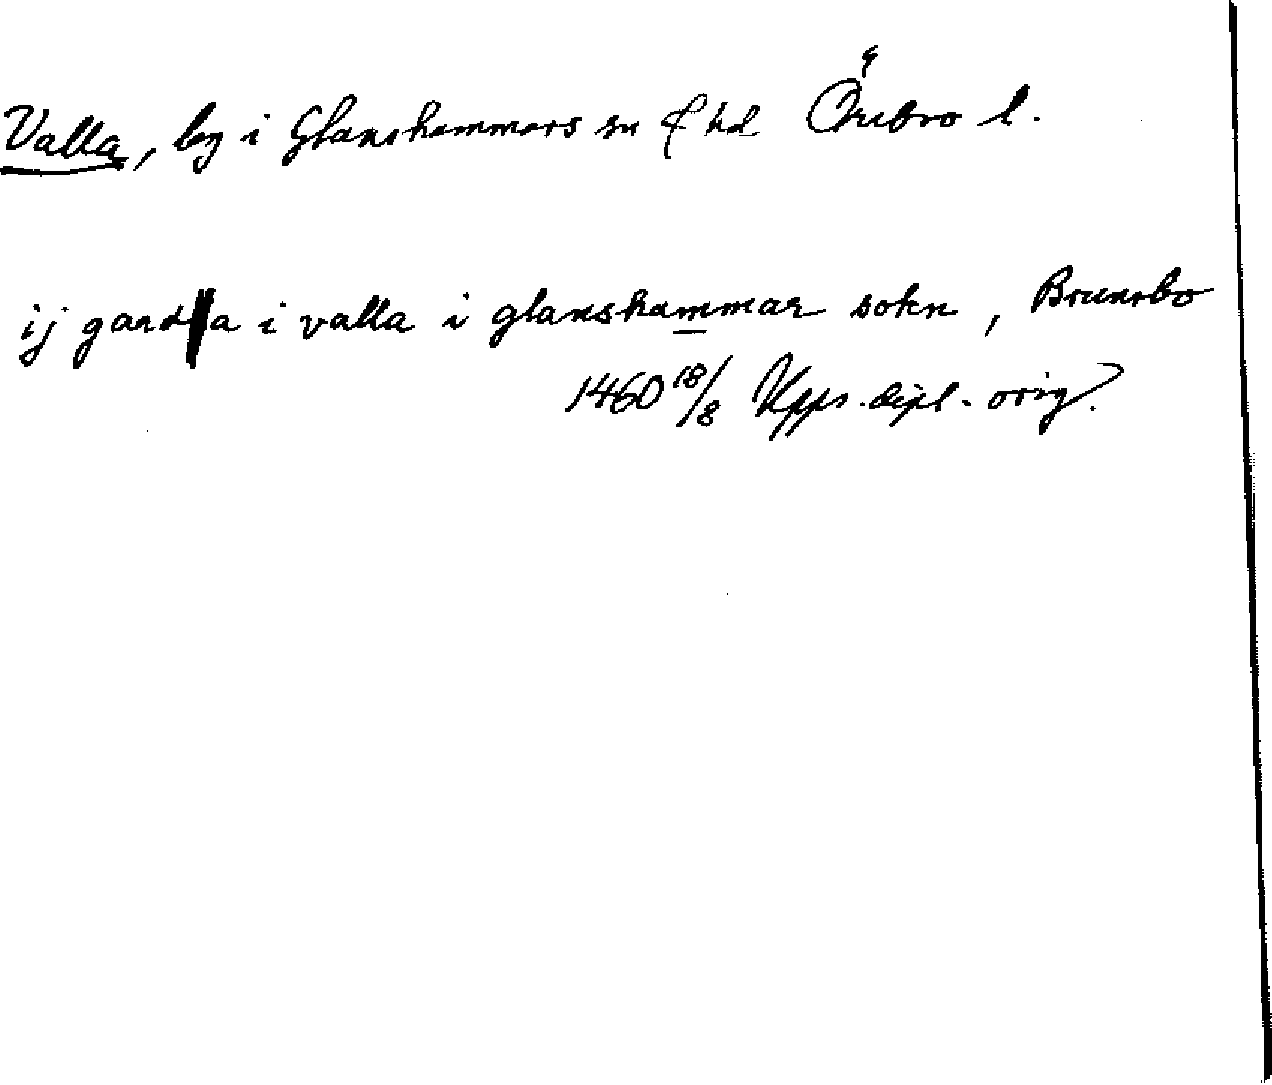 Valla, by i Glanshammars sn & hd Örebro l.
ij garda i valla i glanshammar sokn, Brunsbo
1460 18/8 Upps. dipl. orig.